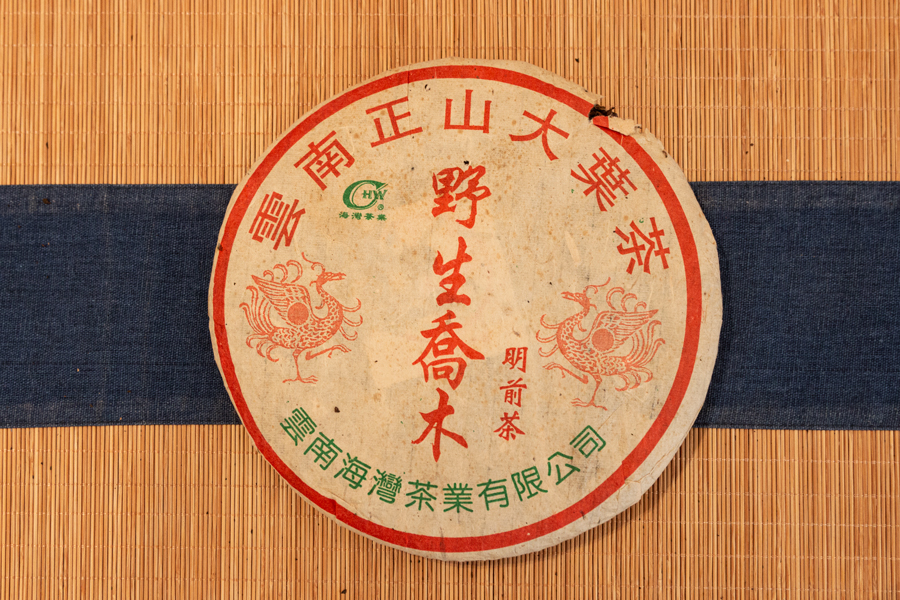 雲南正山大葉茶
CHW®
海灣茶業
野生喬木
明前茶
雲南海灣茶業有限公司